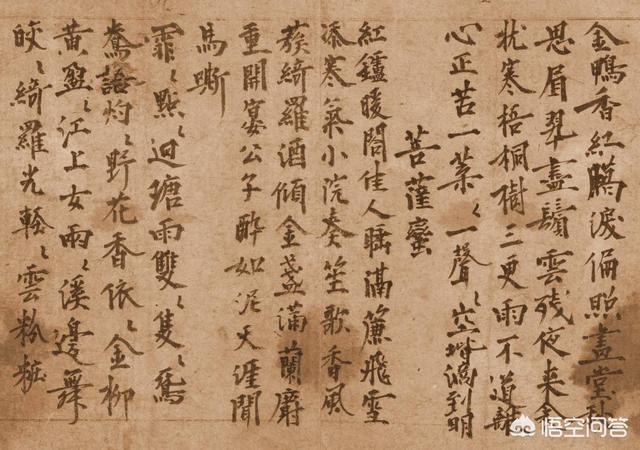 金鴨香紅臈淚偏照畫堂秋
思眉翠盡鬢雲殘夜來衾
枕寒梧桐樹三更雨不道離
心正苦一葉〻一聲〻空堦滴到明
菩薩蠻
紅鑪暖閤佳人睡滿簾飛雪
添寒氣小院奏笙歌香風
蔟綺羅酒傾金盞滿蘭麝
重開宴公子醉如泥天涯聞
馬嘶
霏〻點〻迴塘雨雙〻隻〻鴛
鴦語灼〻野花香依〻金柳
黃盈〻江上女兩〻溪邊舞
皎〻綺羅光輕〻雲粉粧
悟空问答